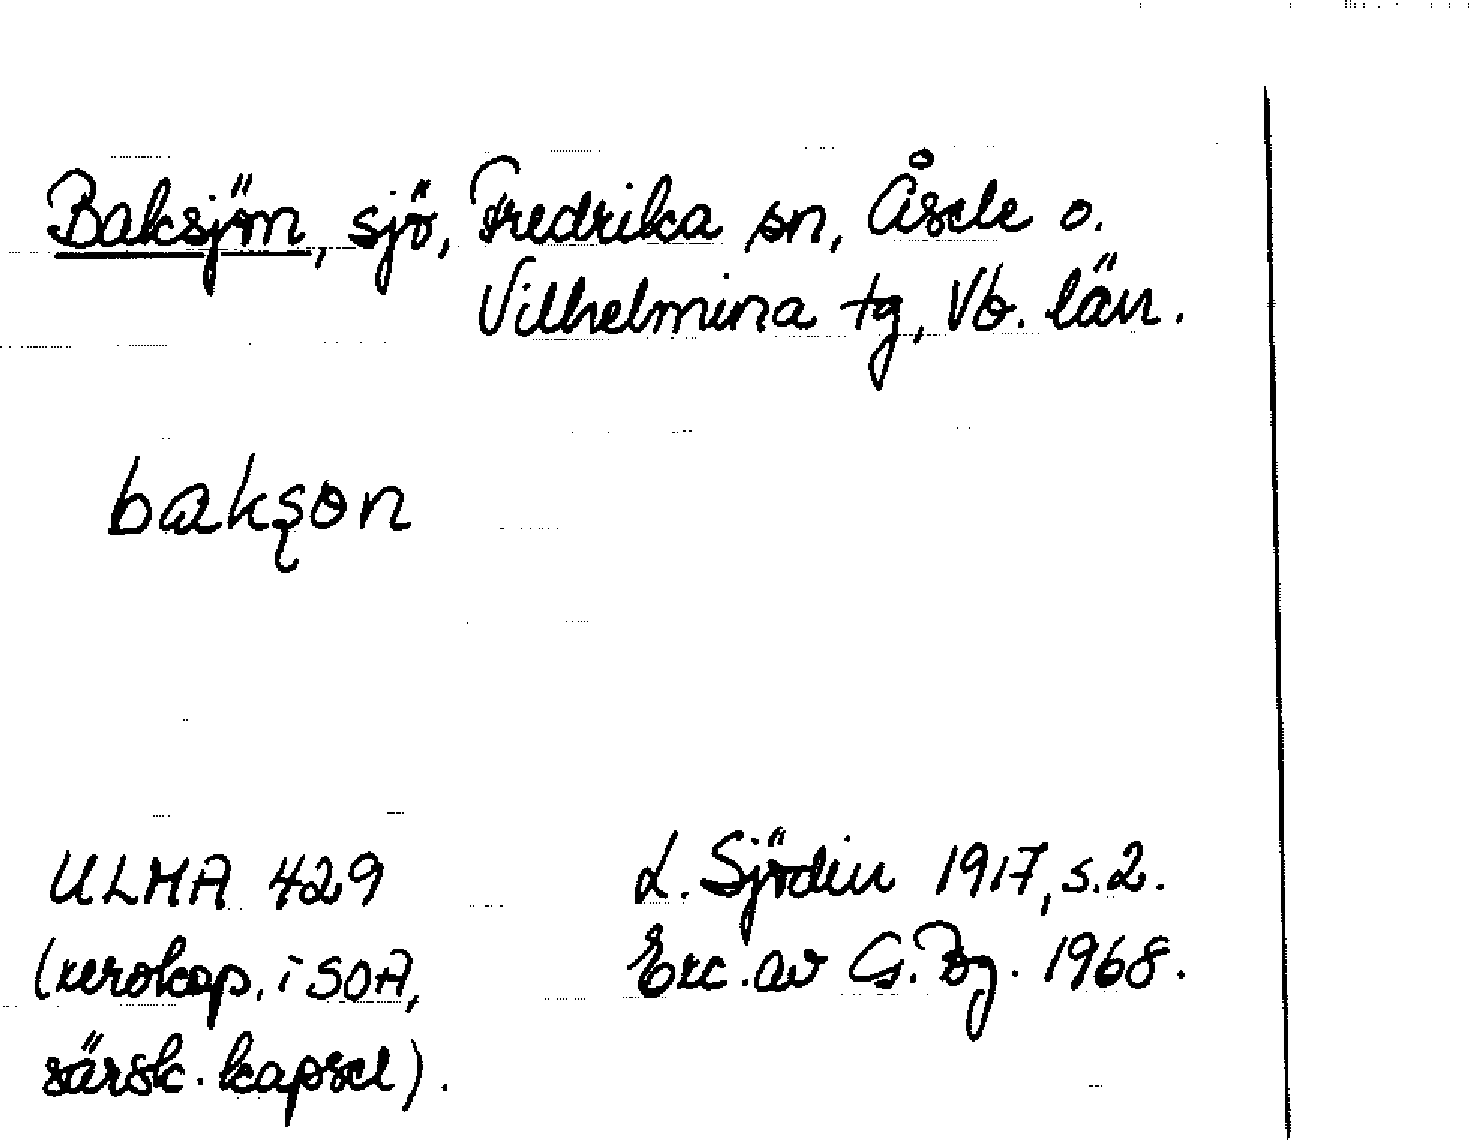 Baksjön, sjö, Fredrika sn, Åsele o.
Vilhelmina tg, Vb. län.
bakșɵn
ULMA 429
(xerokop. i SOA,
särsk. kapsel).
L. Sjödin 1917, s. 2.
Exc. av G. Bg. 1968.